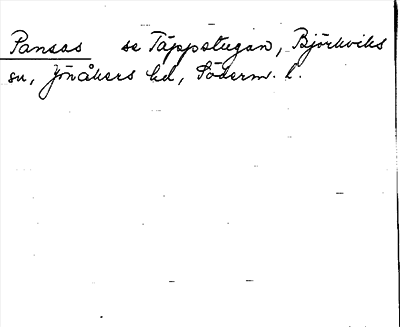 Pansas se Täppstugan, Björkviks
sn, Jönåkers hd, Söderm. l.